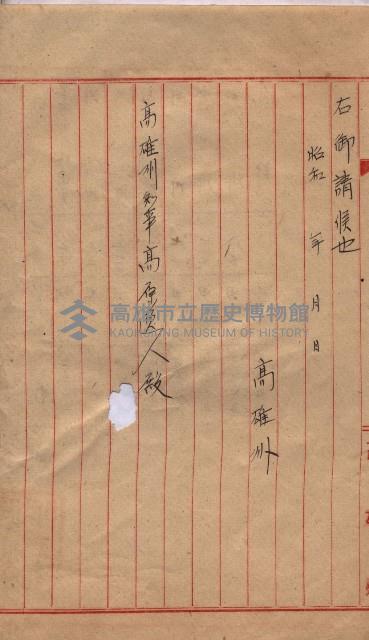 右御請候也
昭和 年 月 日
高雄州
高雄州知事高原逸人殿
高雄市立歷史博物館
KAOHSIUNG MUSEUM OF HISTORY